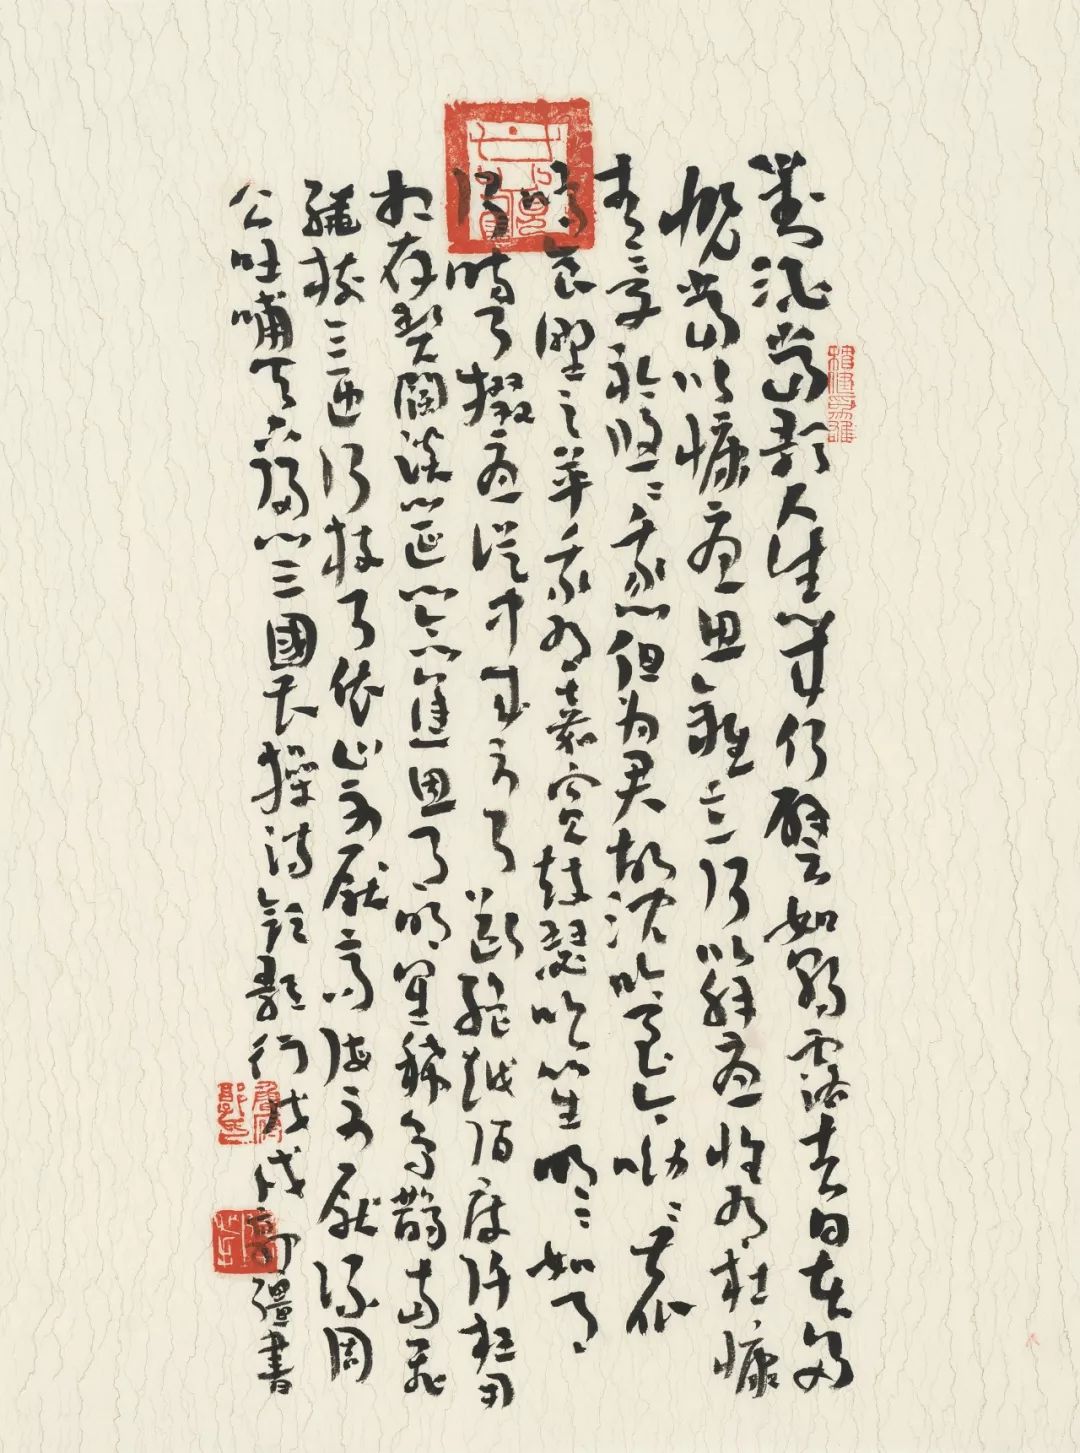 對酒當歌人生幾何譬如朝露去日苦多
慨當以慷憂思難忘何以解憂惟有杜慷
青〻子衿悠〻我心但为君故沈吟至今呦〻鹿
鳴食野之苹我有嘉賓鼓瑟吹笙明〻如月
何時可掇憂從中來不可斷絕越陌度阡枉用
相存契闊談讌心念舊恩月明星稀烏鵲南飛
繞樹三匝何枝可依山不厭高海不厭深周
公吐哺天下歸心三國曹操詩短歌行戊戌郭彊書